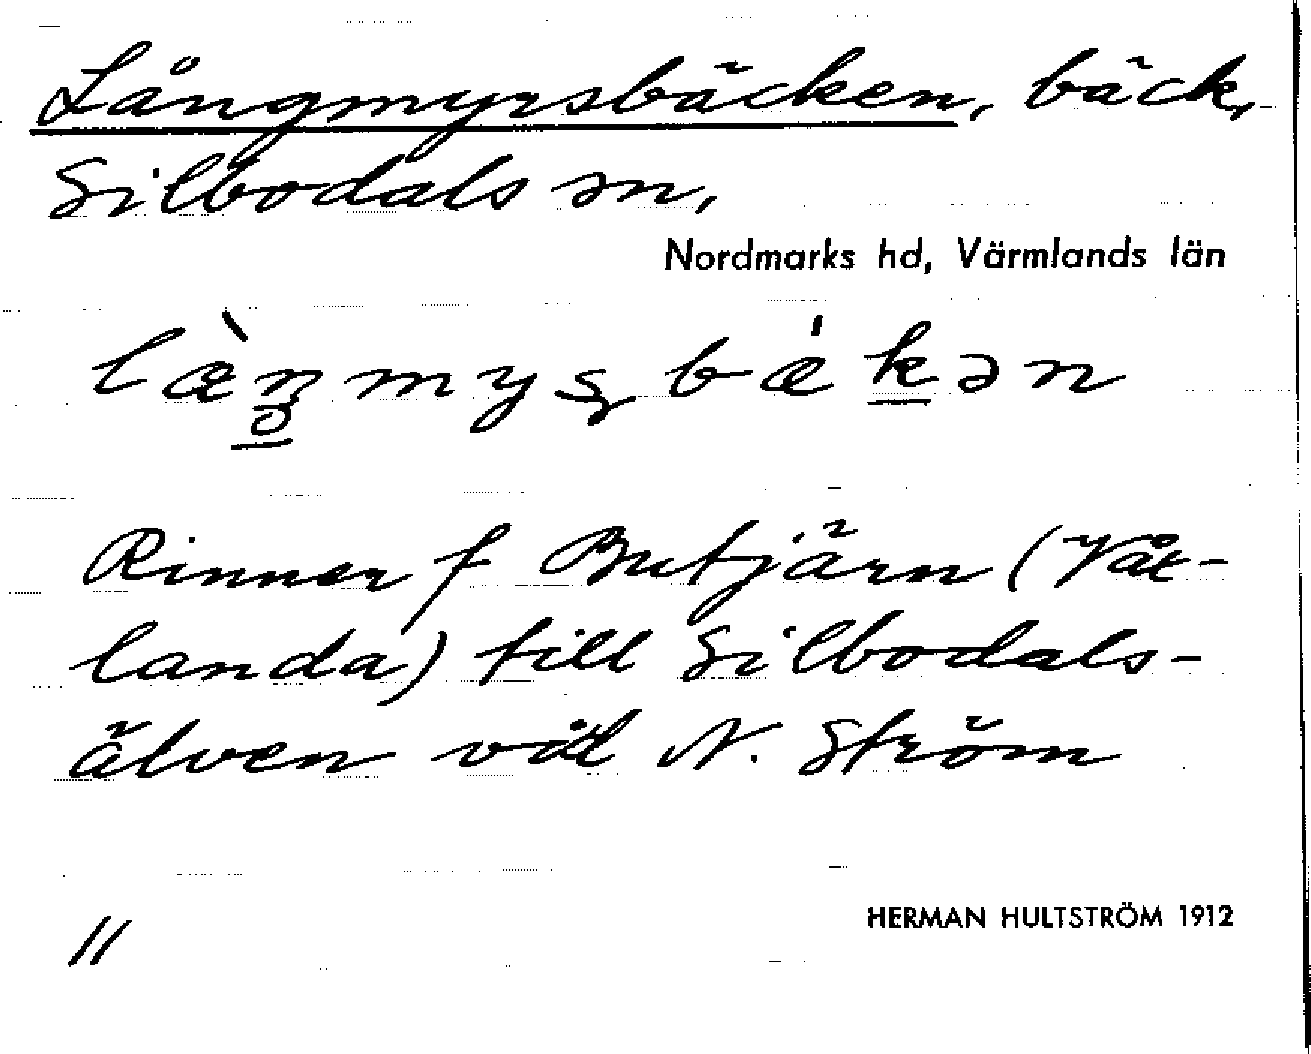 Långmyrsbäcken, bäck,
Silbodals sn,
Nordmarks hd, Värmlands län
Rinner f Butjärn (Våt-
landa) till Silbodals-
älven vid N. Ström
HERMAN HULTSTRÖM 1912
11